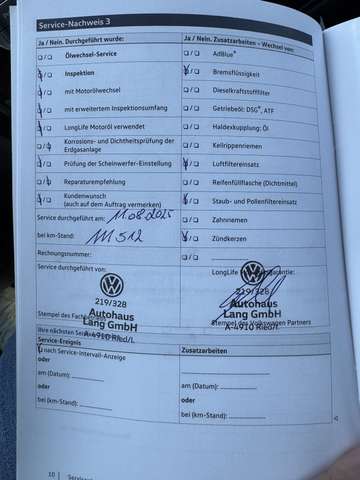 Service-Nachweis 3
Ja / Nein. Durchgeführt wurde:
Ja / Nein. Zusatzarbeiten – Wechsel von:
Ölwechsel-Service
AdBlue®
Inspektion
Bremsflüssigkeit
mit Motorölwechsel
Dieselkraftstofffilter
mit erweitertem Inspektionsumfang
Getriebeöl: DSG®, ATF
LongLife Motoröl verwendet
Haldexkupplung: Öl
Korrosions- und Dichtheitsprüfung der
Erdgasanlage
Keilrippenriemen
Prüfung der Scheinwerfer-Einstellung
Luftfiltereinsatz
Reparaturempfehlung
Reifenfüllflasche (Dichtmittel)
Kundenwunsch
(auch auf dem Auftrag vermerken)
Staub- und Pollenfiltereinsatz
Service durchgeführt am: 11.08.2025
Zahnriemen
bei km-Stand: 111 512
Zündkerzen
Rechnungsnummer:
Service durchgeführt von:
LongLife
219/328
Autohaus
Lang GmbH
A-4910 Ried/I.
219/328
Autohaus
Lang GmbH
A-4910 Ried/I.
Stempel des
Stempel des Volkswagen Partners
Ihre nächsten
Service-Ereignis
Zusatzarbeiten
nach Service-Intervall-Anzeige
oder
am (Datum):
am (Datum):
oder
oder
bei (km-Stand):
bei (km-Stand):
10